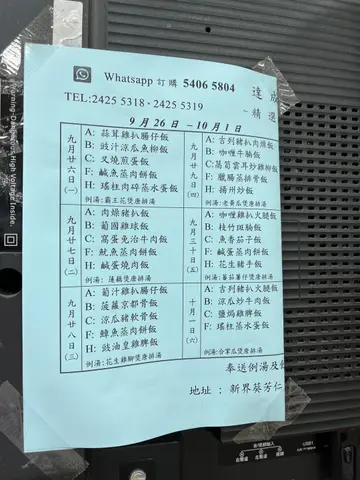 Whatsapp 訂購 5406 5804
達成
TEL:2425 5318、2425 5319
~精選
9月26日 –10月1日
九月廿六日(一)
A: 蒜茸雞扒腸仔飯
B: 豉汁涼瓜魚柳飯
C: 叉燒煎蛋飯
F: 鹹魚蒸肉餅飯
H: 瑤柱肉碎蒸水蛋飯
例湯:霸王花煲唐排湯
九月廿七日(二)
A: 肉燥豬扒飯
B: 葡國雞球飯
C: 窩蛋免治牛肉飯
F: 魷魚蒸肉餅飯
H: 鹹蛋燒肉飯
例湯: 蓮藕煲唐排湯
九月廿八日(三)
A: 茄汁雞扒腸仔飯
B: 菠蘿京都骨飯
C: 涼瓜豬軟骨飯
F: 鯇魚蒸肉餅飯
H: 豉油皇雞髀飯
例湯:花生雞腳煲唐排湯
九月廿九日(四)
A: 吉列豬扒肉燥飯
B: 咖喱牛腩飯
C: 萵筍雲耳炒雞柳飯
F: 臘腸蒸排骨飯
H: 揚州炒飯
例湯:老黃瓜煲唐排湯
九月三十日(五)
A: 咖喱雞扒火腿飯
B: 枝竹斑腩飯
C: 魚香茄子飯
F: 鹹蛋蒸肉餅飯
H: 花生豬手飯
例湯:蕃茄薯仔煲唐排湯
十月一日(六)
A: 吉列豬扒火腿飯
B: 涼瓜炒牛肉飯
C: 鹽焗雞髀飯
F: 瑤柱蒸水蛋飯
例湯:合掌瓜煲唐排湯
奉送例湯及
地址 : 新界葵芳仁
Warning-Dangerous High Voltage Inside.
USB1